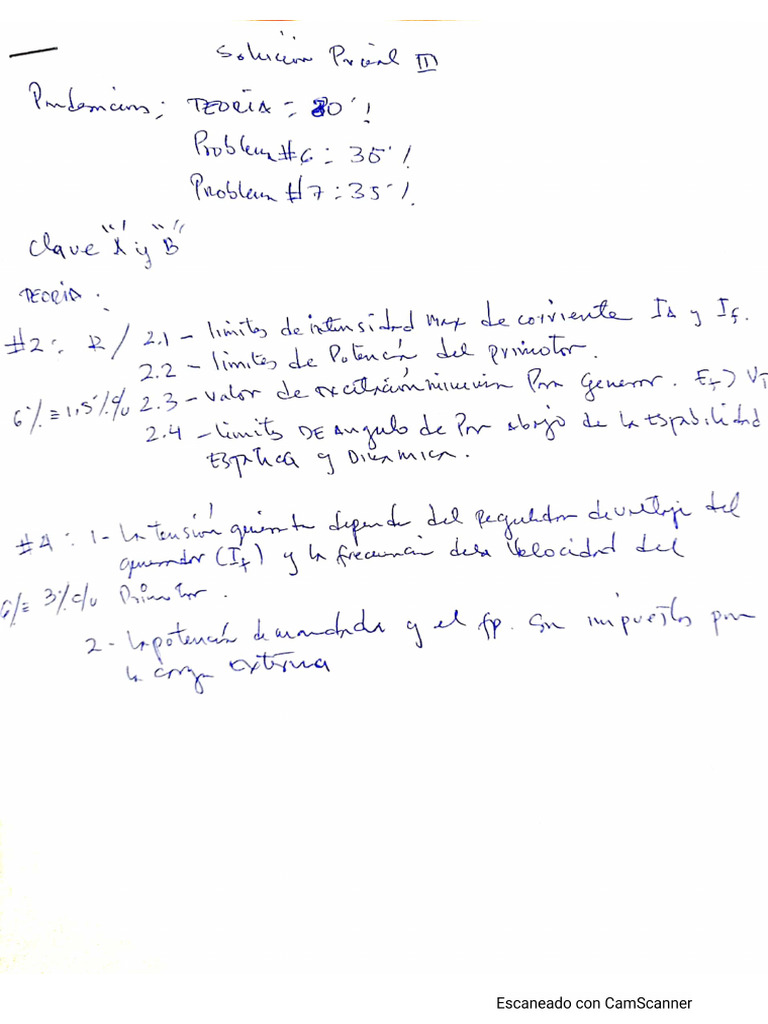 Solución Parcial III
Ponderaciones; TEORÍA = 30%
Problem #6 = 35%
Problem #7 = 35%
Clave "A" y "B"
TEORIA :
#2: R/ 2.1 - límites de intensidad max de corriente IA y If.
2.2 - límites de Potencia del primotor.
6% ≡ 1,5% c/u 2.3 - Valor de excitación mínima para Generar. Ef > VT
2.4 - límites DE Angulo de Par abajo de la Estabilidad
Estática y Dinámica.
#4: 1- La tensión depende del Regulador de voltaje del
generador (If) y la frecuencia de la Velocidad del
6% ≡ 3% c/u Primotor.
2- La potencia demandada y el fp. Son impuestos por
la carga externa
Escaneado con CamScanner